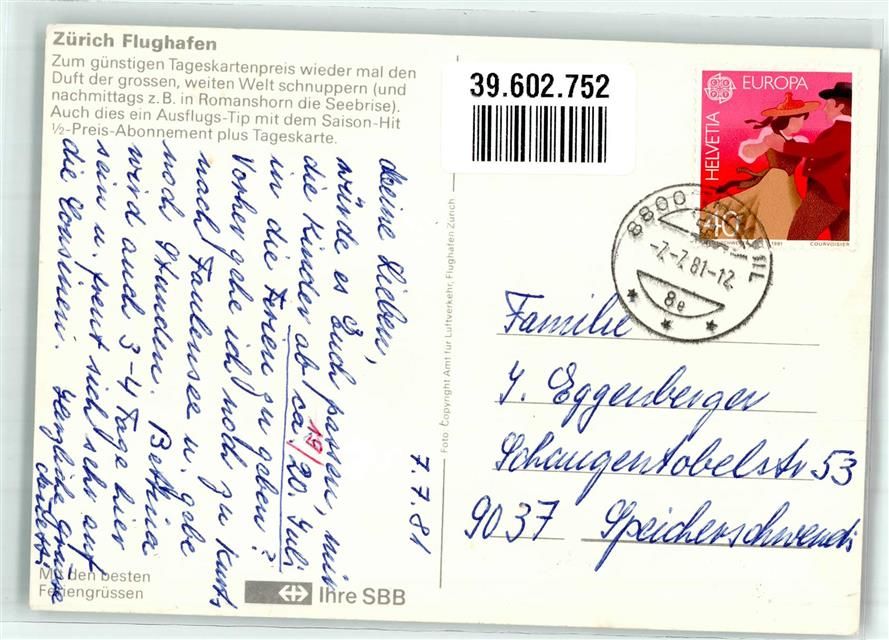 Zürich Flughafen
Zum günstigen Tageskartenpreis wieder mal den
Duft der grossen, weiten Welt schnuppern (und
nachmittags z.B. in Romanshorn die Seebrise).
Auch dies ein Ausflugs-Tip mit dem Saison-Hit
½-Preis-Abonnement plus Tageskarte.
7.7.81
Meine Lieben,
würde es Euch passen, mir
die Kinder ab ca. 19./20. Juli
in die Ferien zu geben?
Vorher gehe ich noch zu Kurts
nach Faulensee u. gebe
noch Stunden. Bettina
wird auch 3-4 Tage hier
sein u. freut sich sehr auf
die Cousinen. Herzliche Grüsse
Mit den besten
Feriengrüssen
Ihre SBB
Foto Copyright Amt für Luftverkehr, Flughafen Zürich
39.602.752
EUROPA
HELVETIA
40
1981
COURVOISIER
8800
-7.-7.81-12
8e
Familie
J. Eggenberger
Schaugentobelstr 53
9037 Speicherschwendi